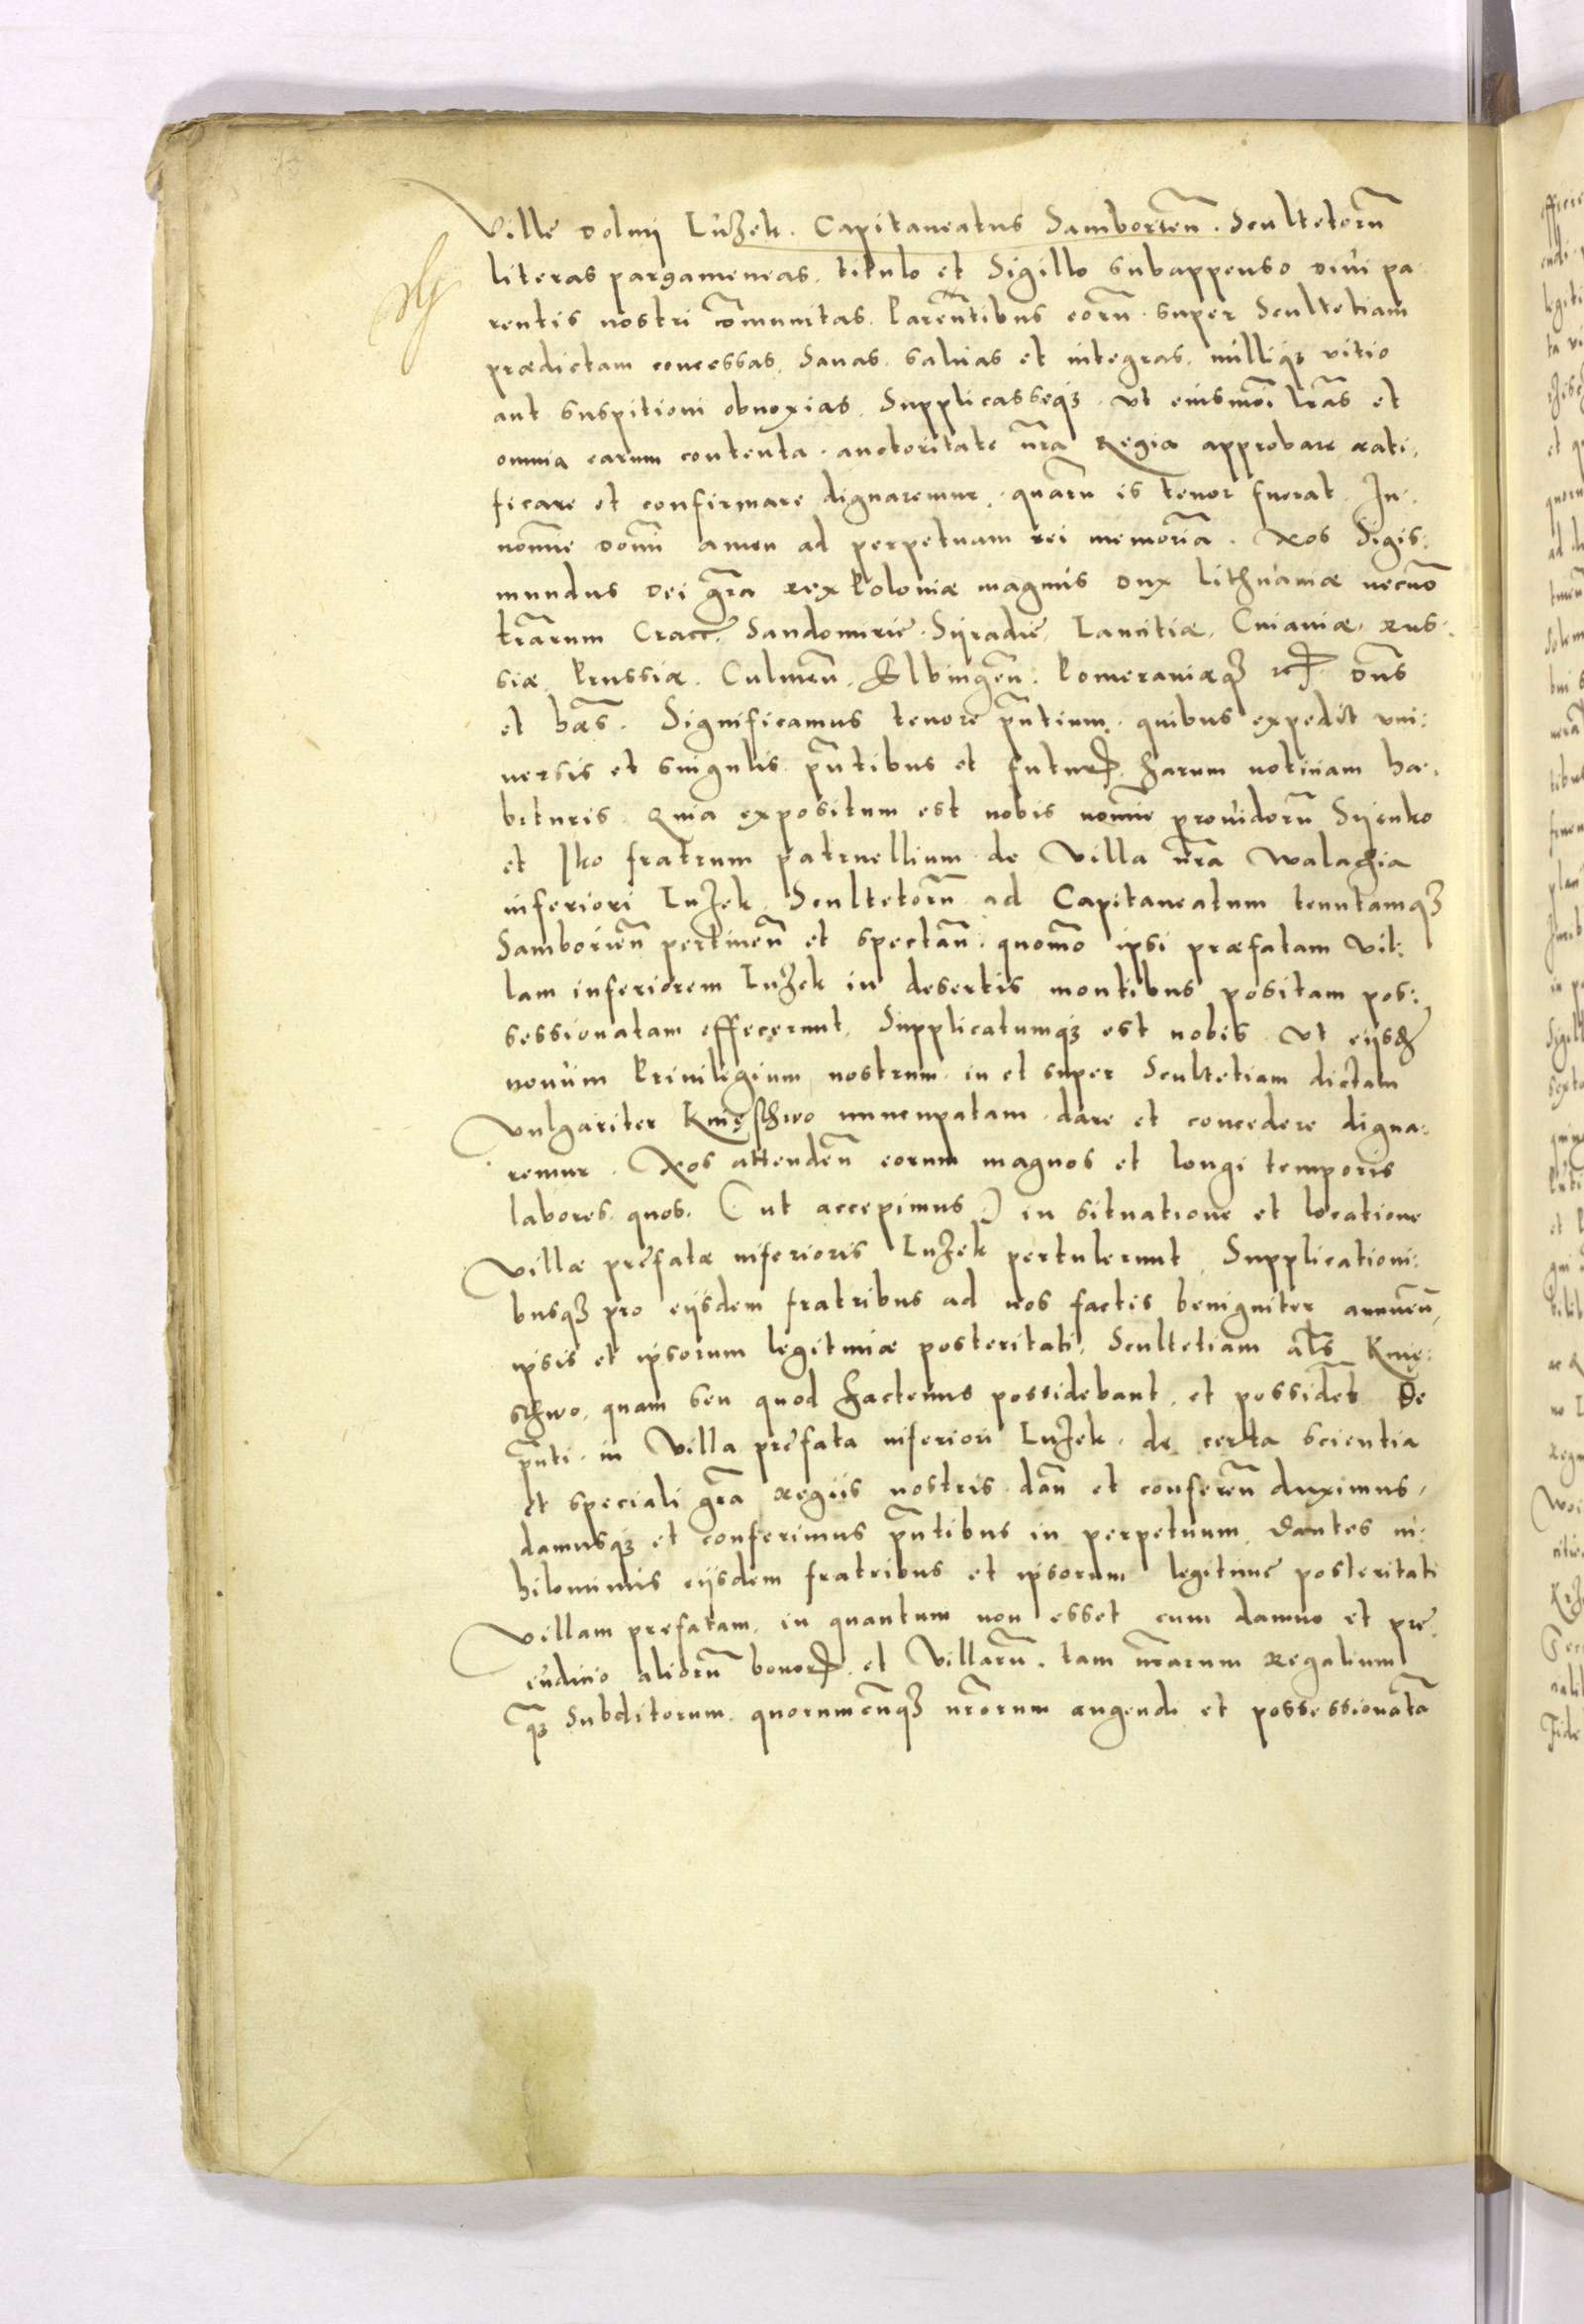 Villę Dolnij Lužek. Capitaneatus Samborień. Scultetorū
literas pargameneas, titulo et Sigillo subappenso Diui pa
rentis nostri cōmunitas. Parēntibus eorū super Scultetiam
prædictam concessas, Sanas, saluas et integras, nulliq3 vitio
aut suspitioni obnoxias, Supplicasseq3, vt eiusmōi lrās et
omnia earum contenta, auctoritate nrā Regia approbare rati,
ficare et confirmare dignaremur, quarū is tenor fuerat. In
nomīe Domī amen ad perpetuam rei memoriā. Nos Sigis:
mundus Dei grā rex Poloniæ magnus Dux Lithuaniæ necnō
trārum Cracc̄, Sandomirię, Syradię, Lancitiæ, Cuiauiæ, Rus:
siæ, Prussiæ, Culmeñ, Elbingeñ, Pomeraniæq3 etc. Dn̄s
et hæs̄. Significamus tenore pn̄tium, quibus expedit vni:
uersis et singulis pn̄tibus et futur̄, harum notitiam ha,
bituris. Quia expositum est nobis nomīe prouidorū Syenko
et Iko fratrum patruellium de Villa nrā Walachia
inferiori Lužek, Scultetorū ad Capitaneatum tenutamq3
Samborień pertineñ et spectañ, quomō ipsi præfatam Vil:
lam inferiorem Lužek in desertis montibus positam pos:
sessionatam effecerunt, Supplicatumq3 est nobis, vt eijsd̄
nouum Priuilegium nostrum in et super Scultetiam dictam
Vulgariter Knięsthwo nuncupatam dare et concedere digna:
remur. Nos attendeñ eorum magnos et longi temporis
labores, quos, (ut accepimus) in situatione et locatione
Villæ pręfatæ inferioris Lužek pertulerunt, Supplicationi:
busq3 pro eijsdem fratribus ad nos factis benigniter annueñ,
ipsis et ipsorum legitimæ posteritati, Scultetiam al̄s Knię:
sthwo, quam seu quod hactenus possidebant, et possideñt De
pn̄ti in Villa pręfata inferiori Lužek, de certa scientia
et speciali grā regijs nostris dañ et confereñ duximus,
damusq3 et conferimus pn̄tibus in perpetuum, Dantes ni:
hilominus eijsdem fratribus et ipsorum legitimę posteritati
Villam prefatam, in quantum non esset cum damno et prę
iudicio aliorū bonor̄, et Villarū, tam nrārum Regalium
q̄3 Subditorum quorumcūq3 nrōrum augendi et possessionatā